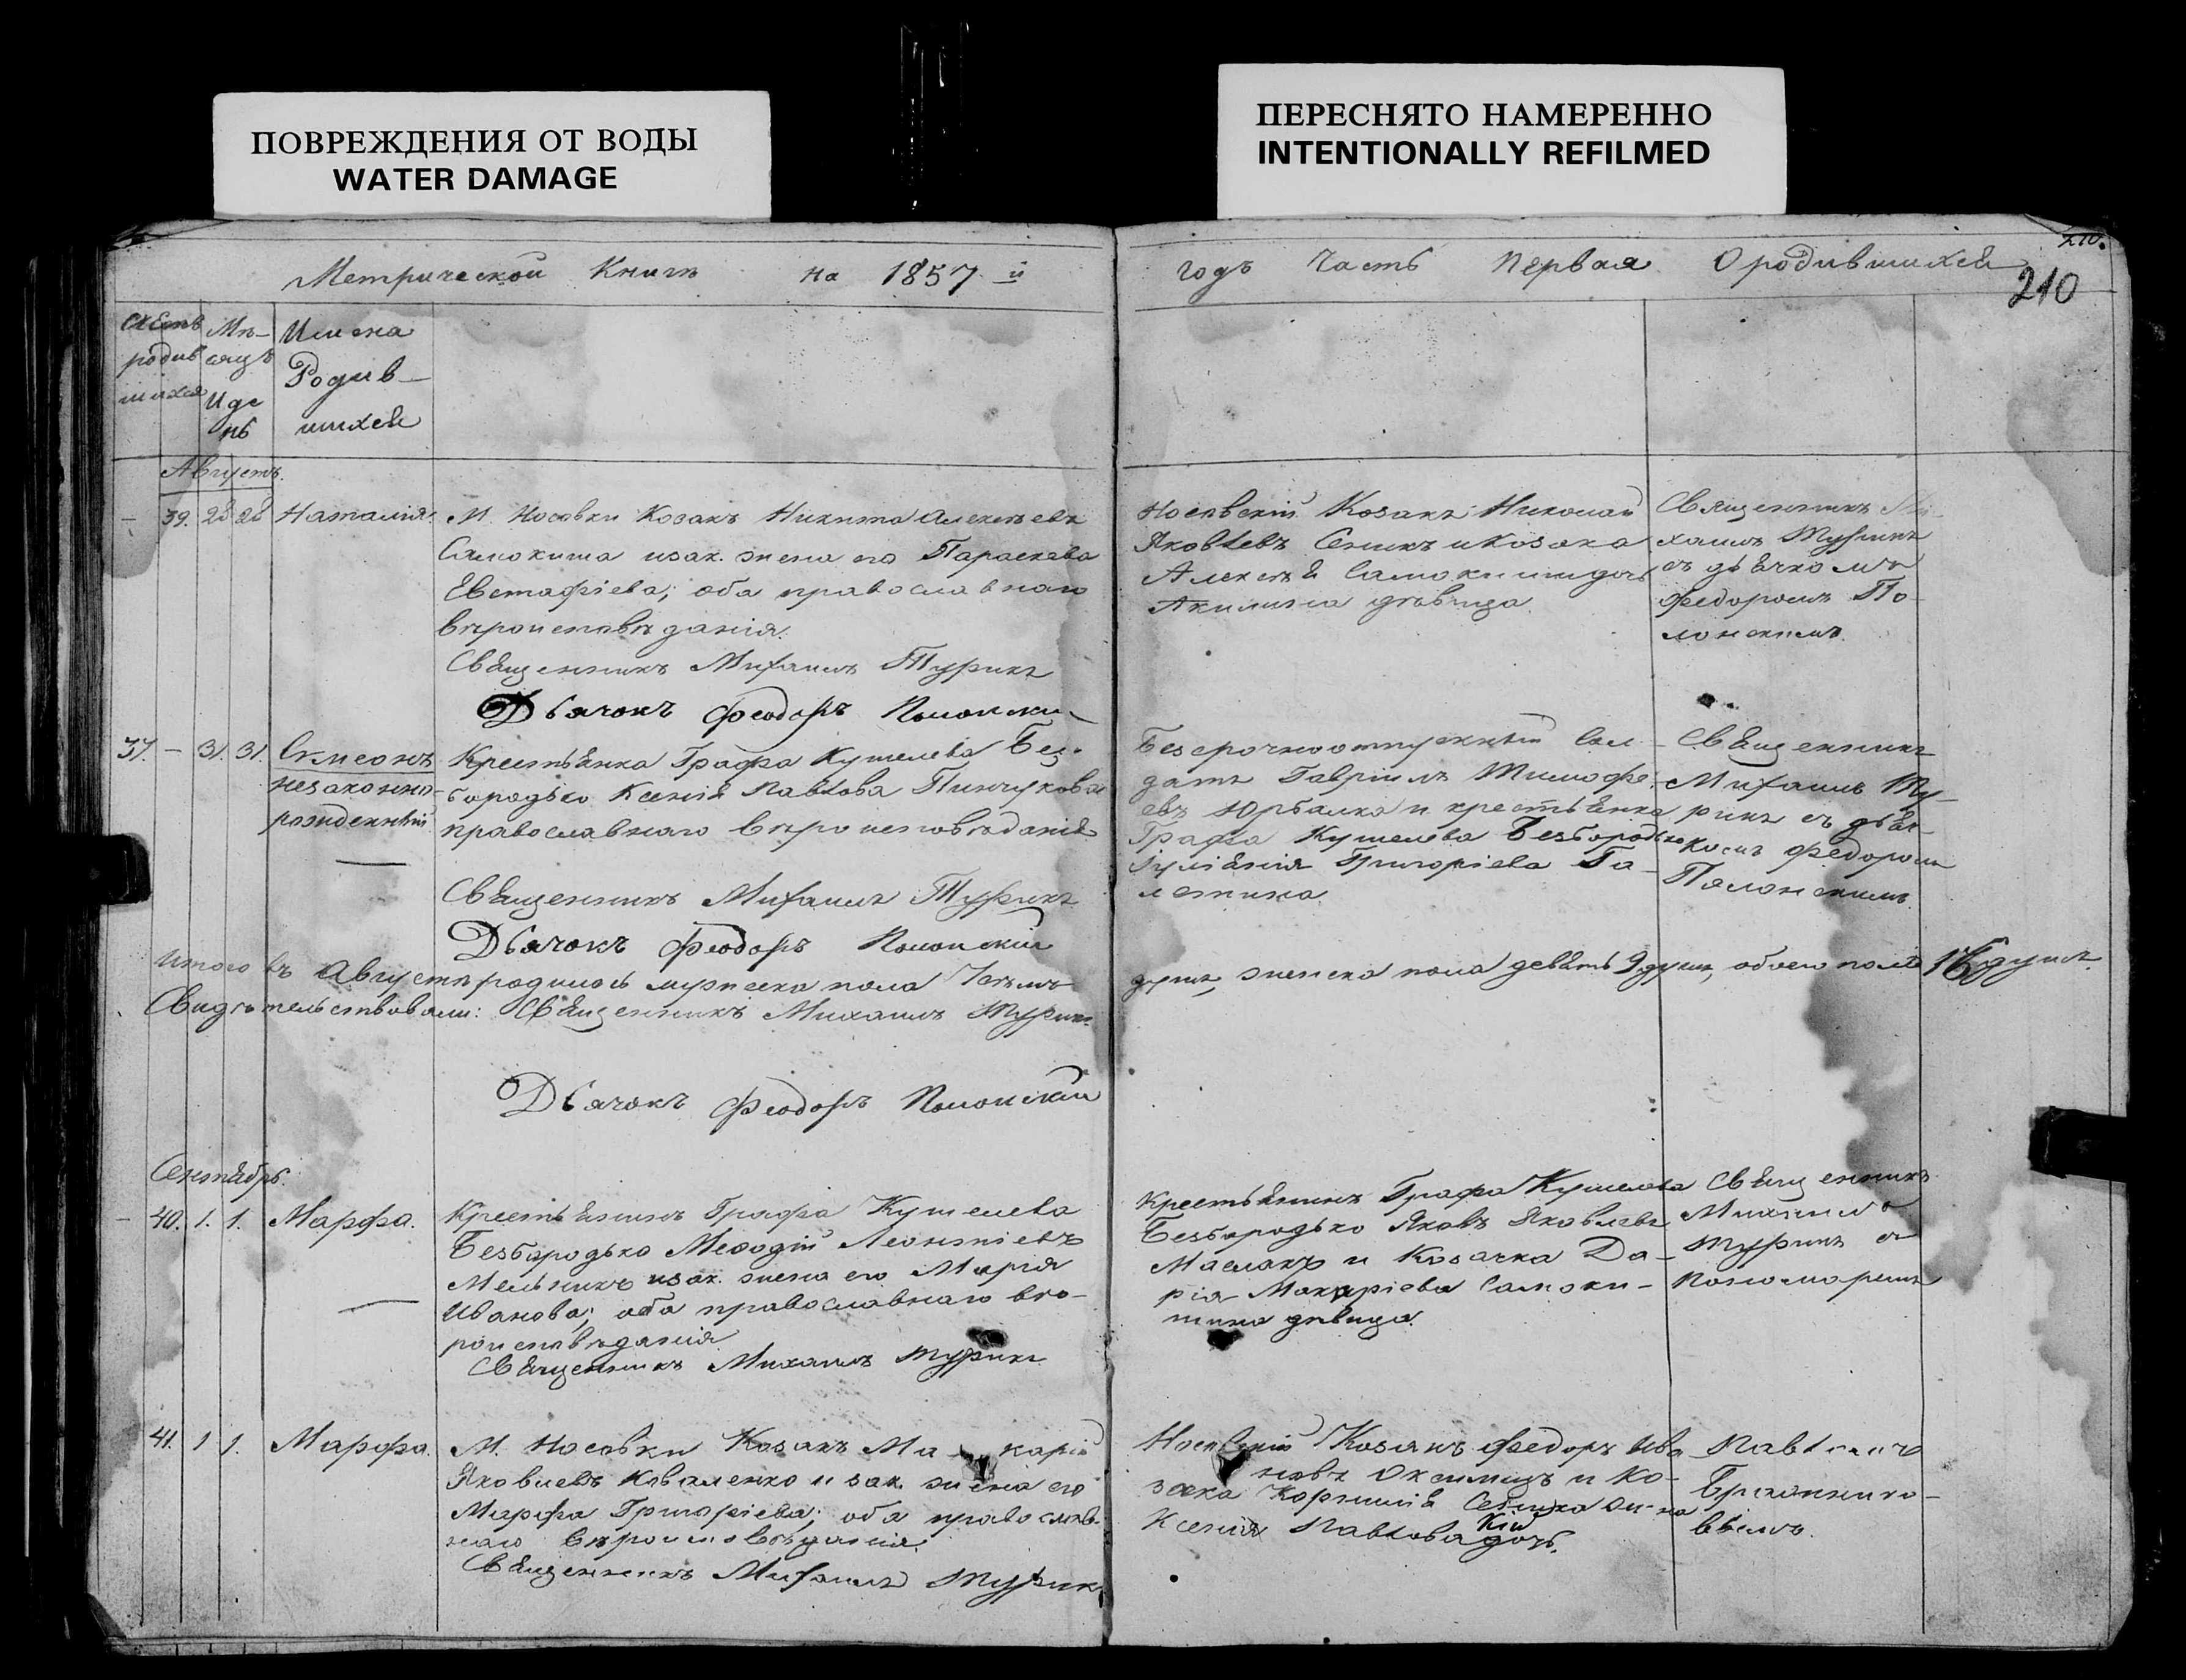 ПОВРЕЖДЕНИЯ ОТ ВОДЫ
WATER DAMAGE
ПЕРЕСНЯТО НАМЕРЕННО
INTENTIONALLY REFILMED
Метрической Книги на 1857 й
годъ Часть Первая О родившихся
210.
210
Счетъ родив шихся
Мѣ- сяцъ И де нь
Имена Родив- шихся
Августъ.
39. 28 28 Наталія.
М. Носовки Козакъ Никита Алексѣевъ
Самокиша и зак. жена его Параскева
Евстафіева; оба православнаго
вѣроисповѣданія.
Священникъ Михаилъ Турикъ
Дьячокъ Феодоръ Полонскій
Носовскій Козакъ Николай
Яковлевъ Сеникъ и козака
Алексѣя Самокиши дочь
Акилина дѣвица.
Священникъ Ми-
хаилъ Турикъ
съ дьячкомъ
Федоромъ По-
лонскимъ.
37. — 31. 31. Симеонъ
незаконно-
рожденный
Крестьянка Графа Кушелева Без-
бородько Ксенія Павлова Пинчукова
православнаго вѣроисповѣданія
Священникъ Михаилъ Турикъ
Дьячокъ Феодоръ Полонскій
Безсрочноотпускный Сол-
датъ Гавріилъ Тимофе-
евъ Юрбалка и крестьянка
Графа Кушелева Безбородько
Іуліянія Григоріева Га-
Священникъ
Михаилъ Ту-
рикъ съ дьяч-
комъ Федоромъ
Полонскимъ.
Итого въ Августѣ родилось мужеска пола
душъ, женска пола девять 9 душъ, обоего пола 16 душъ.
Свидѣтельствовали: Священникъ Михаилъ Турикъ
Дьячокъ Феодоръ Полонскій
Сентябрь.
40. 1. 1. Марфа.
Крестьянинъ Графа Кушелева
Безбородько Меѳодій Леонтіевъ
Мельникъ и зак. жена его Марія
Иванова; оба православнаго вѣ-
роисповѣданія
Священникъ Михаилъ Турикъ
Крестьянинъ Графа Кушелева
Безбородько Яковъ Яковлевъ
Маслакъ и Козачка Да-
рія Макаріева Самоки-
шина дѣвица.
Священникъ
Михаилъ
Турикъ съ
Пономаремъ
41. 1 1. Марфа.
М. Носовки Козакъ Ма- карій
Яковлевъ Коваленко и зак. жена его
Марфа Григоріева; оба православ-
наго вѣроисповѣданія.
Священникъ Михаилъ Турикъ
Носовскій Козакъ Федоръ Ива
новъ и Ко-
зака Корнилія
Ксенія Павлова дочь.
Павломъ